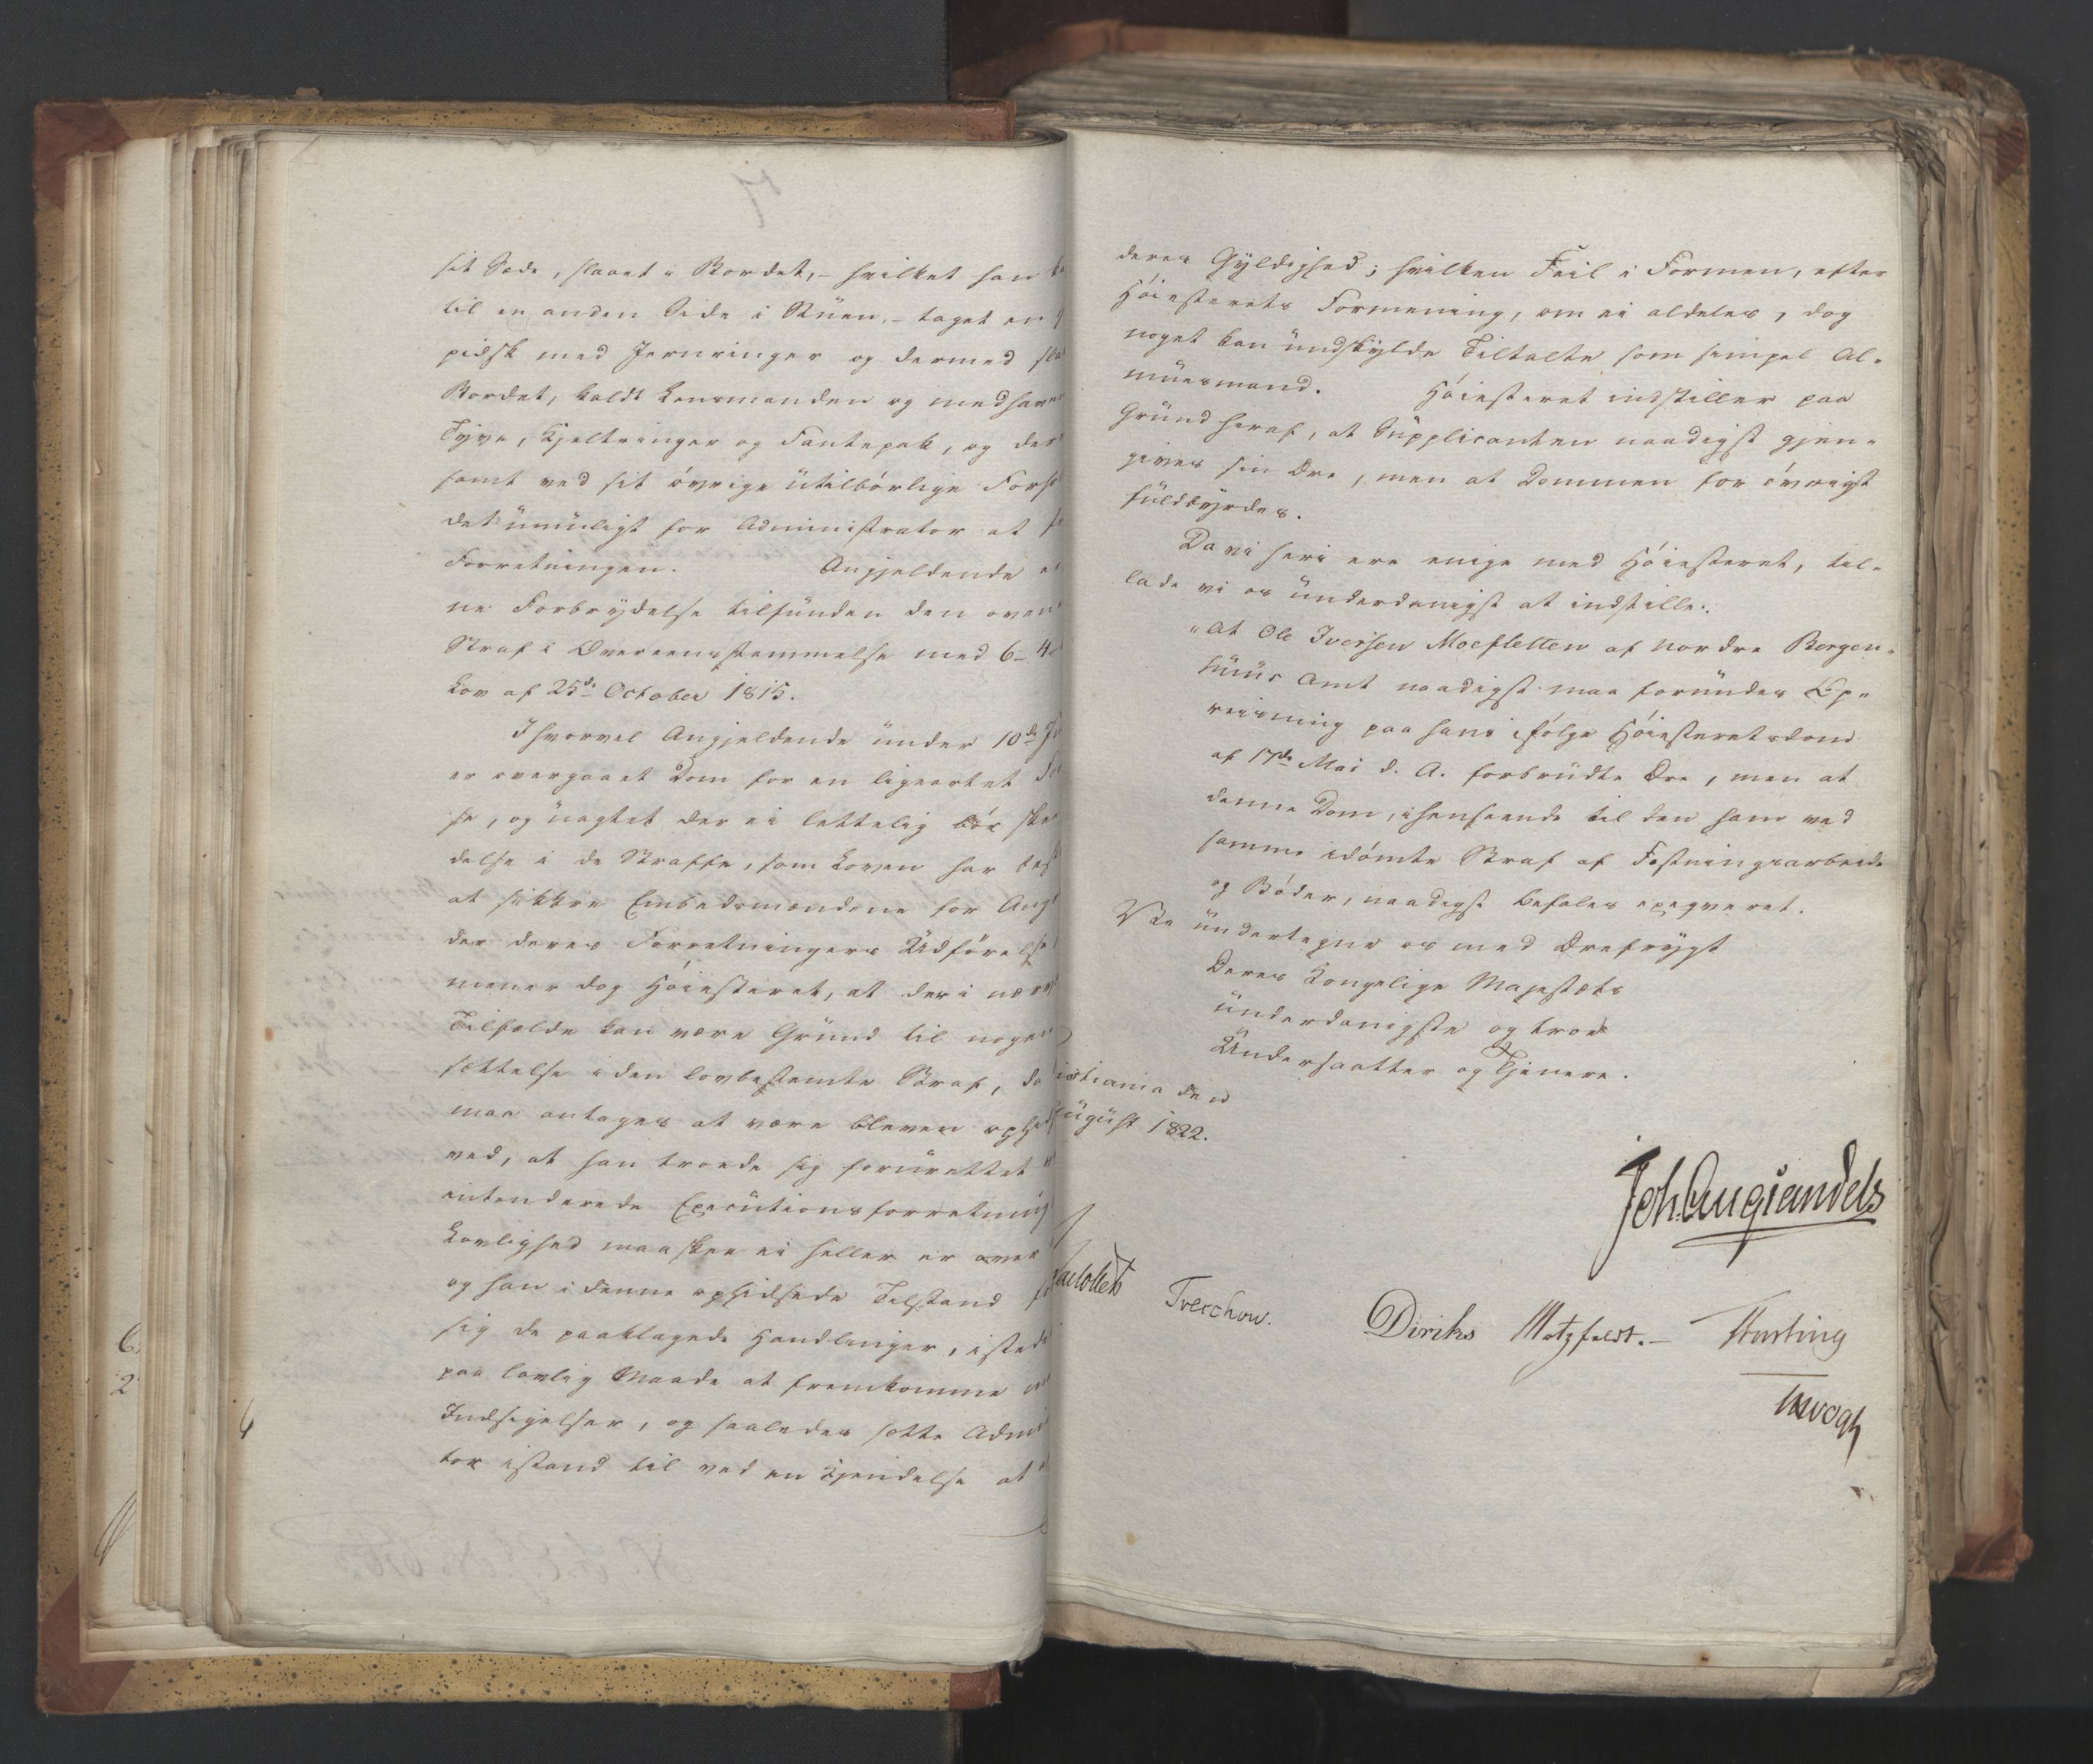 sit Sæde, slaaet i Bordet, – hvilket han
til en anden Side i Stuen, – taget en
pidsk med Jernringer og dermed
Bordet, kaldt Lensmanden og medhave
Tyve, Kjeltringer og Fantepak, og der
samt ved sit øvrige utilbørlige
det umuligt for Administrator at
Forretningen. Angjeldende
ne Forbrydelse tilfunden den oven
Straf i Overeensstemmelse med 6–4
Lov af 25de October 1815.
Ihvorvel Angjeldende under 10de
er overgaaet Dom for en ligeartet
se, og uagtet der ei lettelig bør skee
delse i de Straffe, som Loven har
at sikkre Embedsmændene for
der deres Forretningers Udførelse,
mener dog Høiesteret, at der i
Tilfælde kan være Grund til nogen
sættelse i den lovbestemte Straf, da
maa antages at være bleven
ved, at han troede sig forurettet
intenderede Executionsforretning
Lovlighed maaskee ei heller er
og han i denne ophidsede Tilstand
sig de paaklagede Handlinger, istede
paa lovlig Maade at fremkomme
Indsigelser, og saaledes sætte
tor istand til ved en Kjendelse at
deres Gyldighed; hvilken Feil i Formen, efter
Høiesterets Formening, om ei aldeles, dog
noget kan undskylde Tiltalte som simpel Al-
muesmand. Høiesteret indstiller paa
Grund heraf, at Supplicanten naadigst gjen-
gives sin Ære, men at Dommen for øvrigt
fuldbyrdes.
Da vi heri ere enige med Høiesteret, til-
lade vi os underdanigst at indstille:
"At Ole Iversen Moesletten af Nordre Bergen-
huus Amt naadigst maa forundes Op-
reisning paa hans ifølge Høiesteretsdom
af 17de Mai d. A. forbrudte Ære, men at
denne Dom, ihenseende til den ham ved
samme idømte Straf af Fæstningsarbeide
og Bøder, naadigst befales exeqveret.
Vi undertegne os med Ærefrygt
Deres Kongelige Majestæts
underdanigste og troe
Undersaatter og Tjenere.
istiania den
ugust 1822.
Joh. Aug. Sandels
Collett Treschow. Diriks Motzfeldt. – Hersting
Vogt